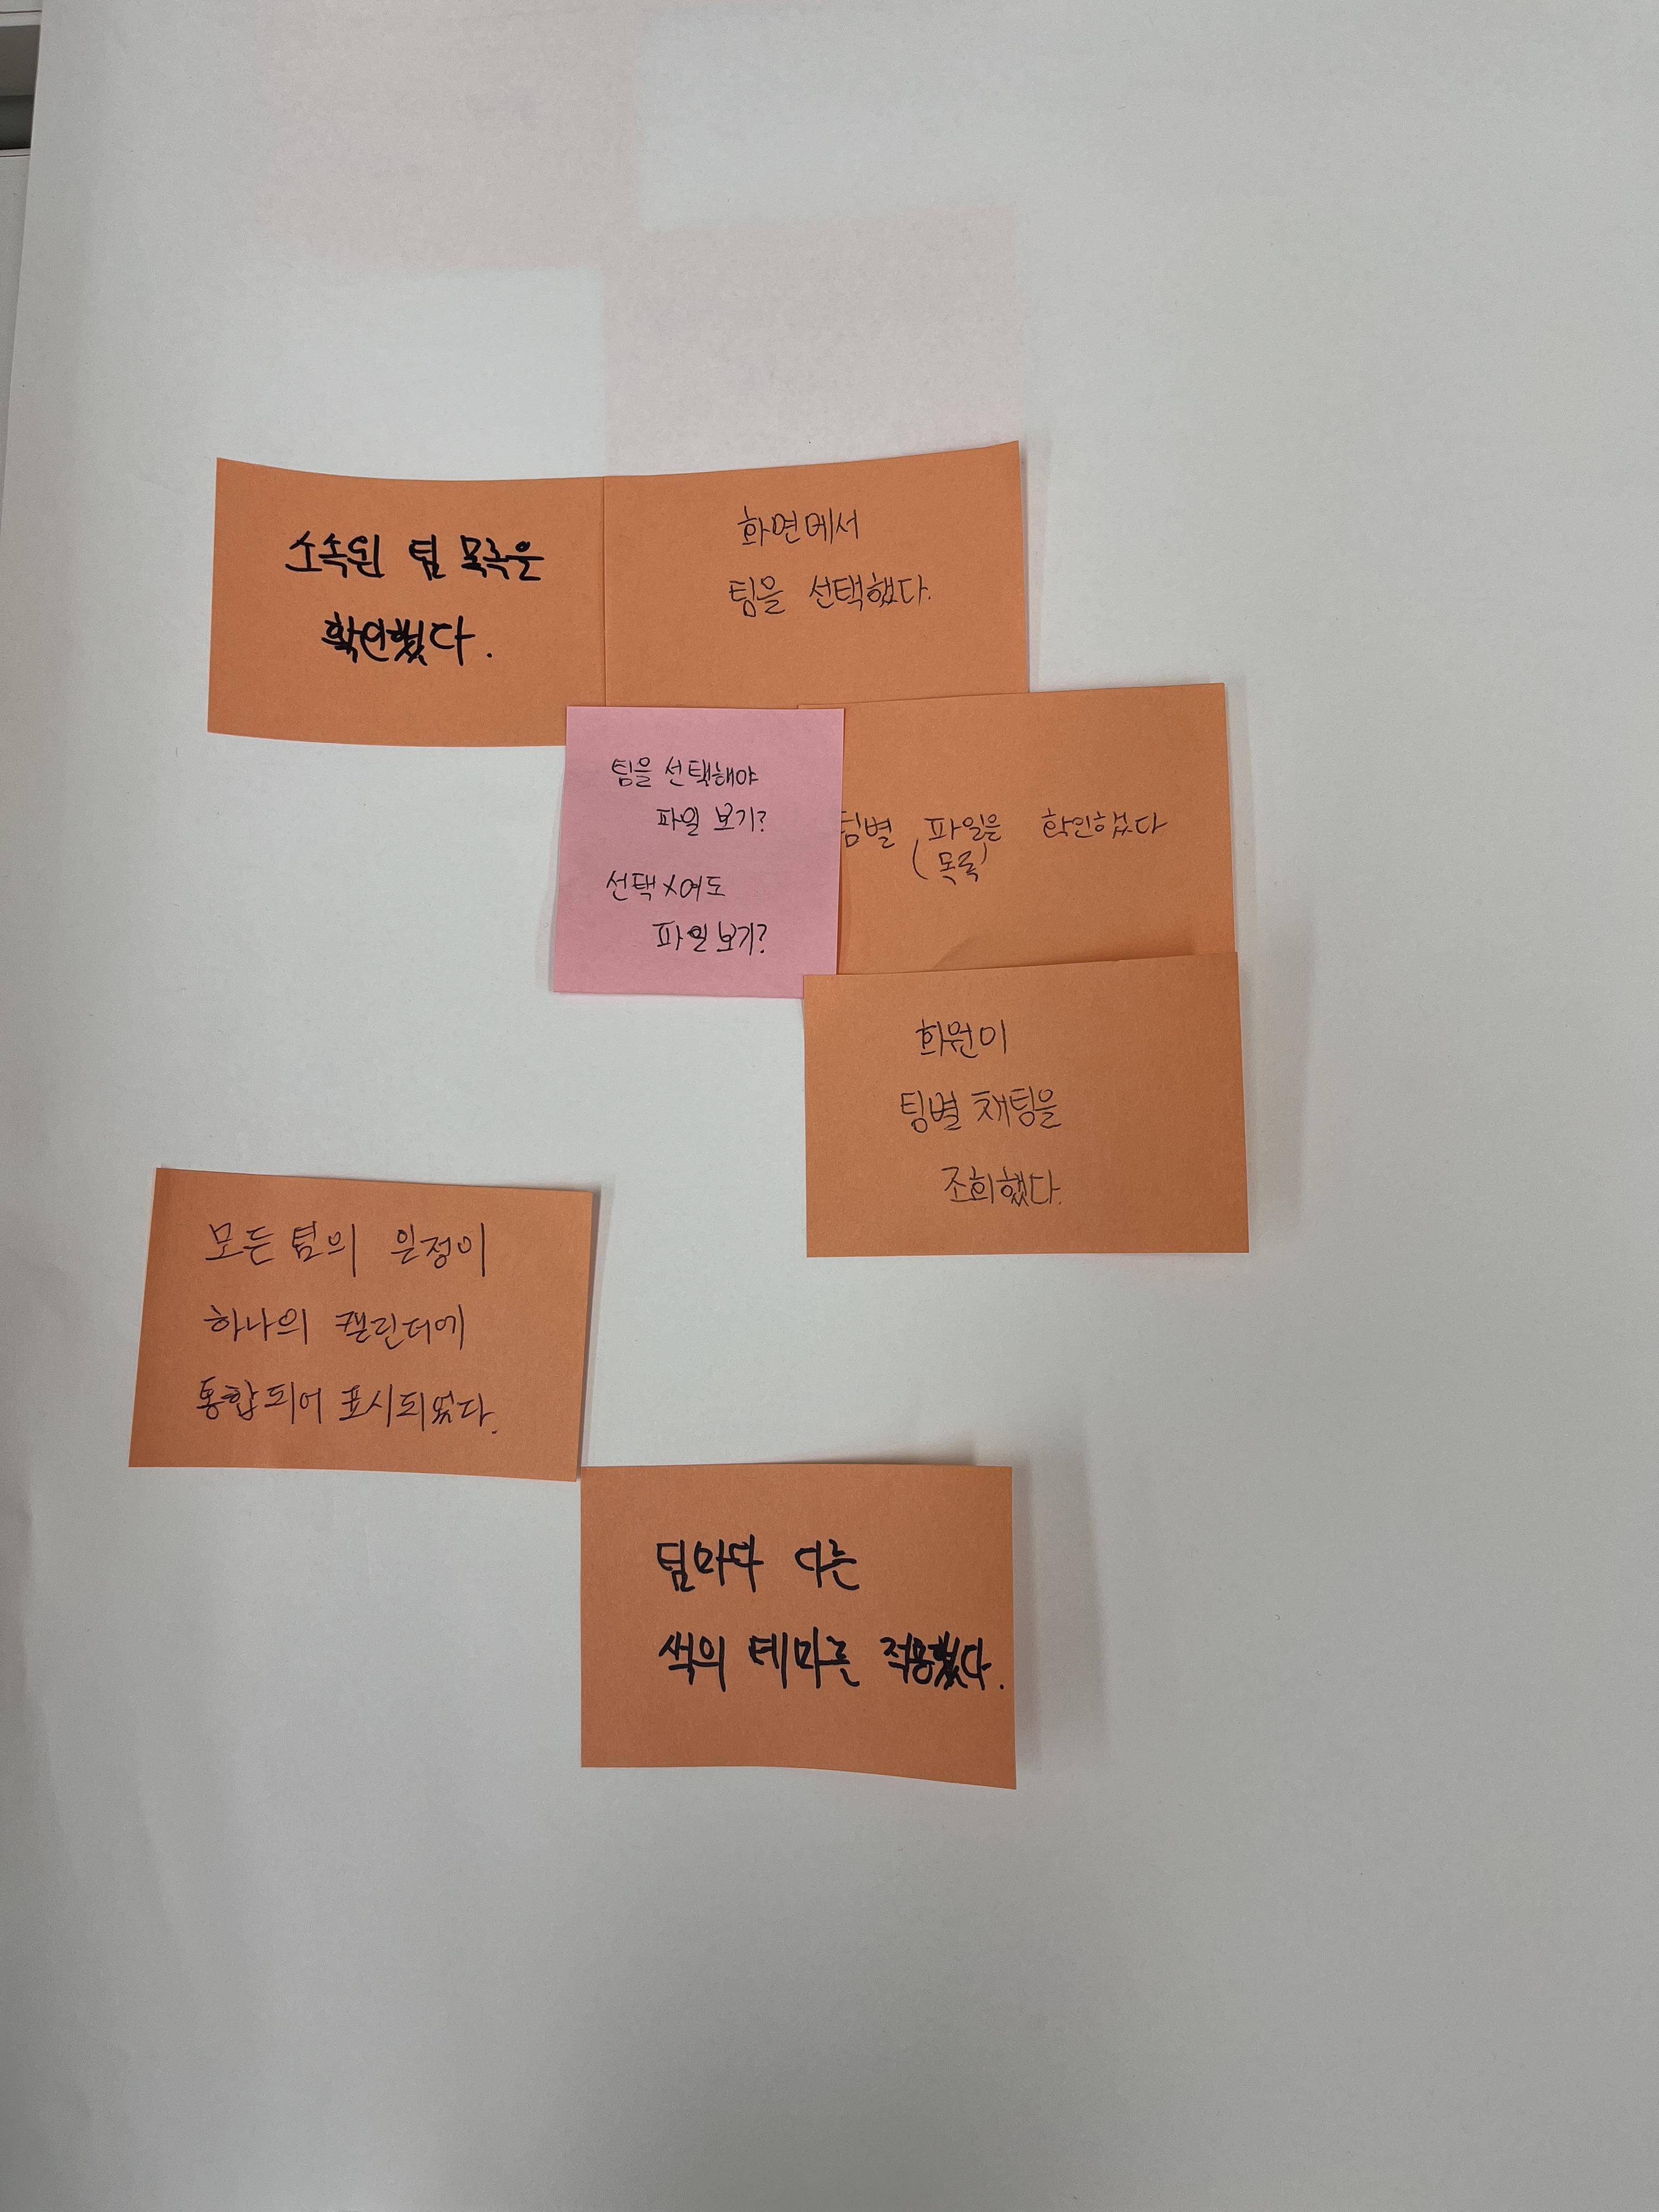 소속된 팀 목록을
확인했다.
화면에서
팀을 선택했다.
팀을 선택해야
파일 보기?
선택 X여도
파일 보기?
팀별 파일을 확인했다
(목록)
회원이
팀별 채팅을
조회했다.
모든 팀의 일정이
하나의 캘린더에
통합되어 표시되었다.
팀마다 다른
색의 테마를 적용했다.